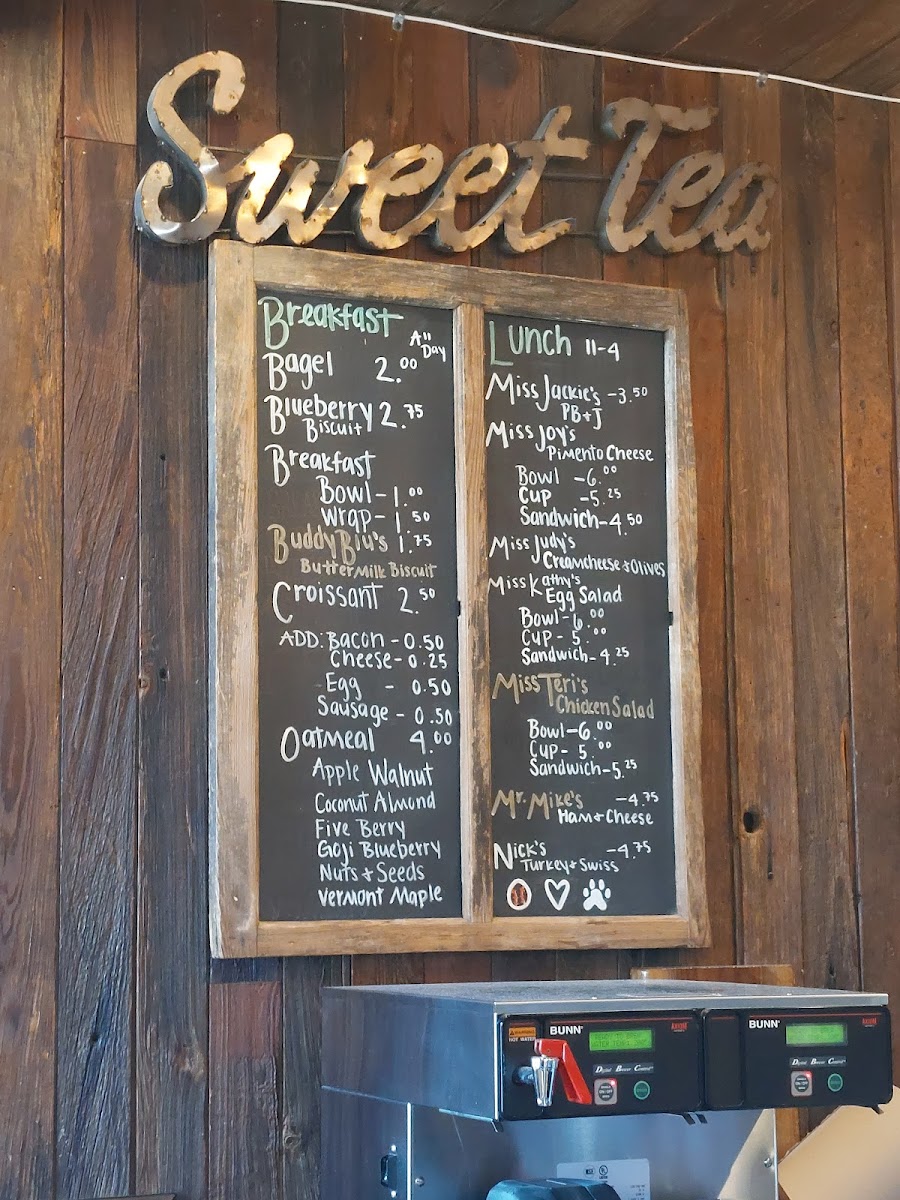 Sweet Tea
Breakfast
All Day
Bagel 2.00
Blueberry 2.75
Biscuit
Breakfast
Bowl - 1.00
Wrap - 1.50
Buddy Blu's 1.75
ButterMilk Biscuit
Croissant 2.50
ADD: Bacon - 0.50
Cheese - 0.25
Egg - 0.50
Sausage - 0.50
Oatmeal 4.00
Apple Walnut
Coconut Almond
Five Berry
Goji Blueberry
Nuts + Seeds
Vermont Maple
Lunch 11-4
Miss Jackie's - 3.50
PB+J
Miss Joy's
Pimento Cheese
Bowl - 6.00
Cup - 5.25
Sandwich - 4.50
Miss Judy's
Creamcheese + Olives
Miss Kathy's
Egg Salad
Bowl - 6.00
Cup - 5.00
Sandwich - 4.25
Miss Teri's
Chicken Salad
Bowl - 6.00
Cup - 5.00
Sandwich - 5.25
Mr. Mike's - 4.75
Ham + Cheese
Nick's - 4.75
Turkey + Swiss
HOT WATER
BUNN
AXIOM
Digital Brewer Control
BUNN
AXIOM
Digital Brewer Control